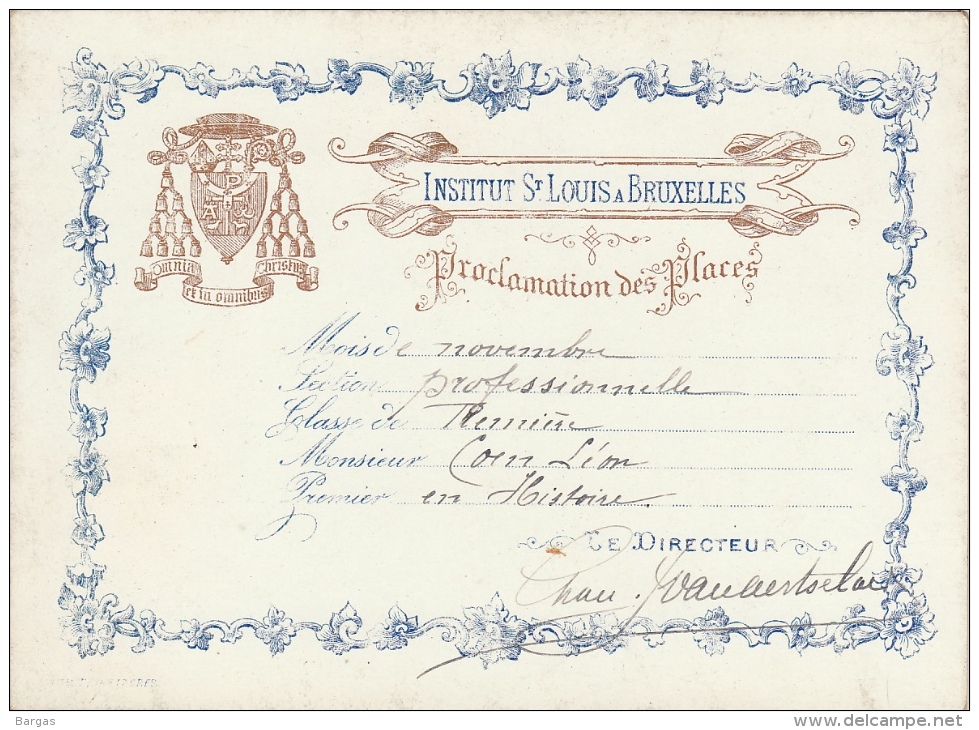 INSTITUT ST. LOUIS A BRUXELLES
Proclamation des Places
Omnia
et in omnibus
Christus
Mois de novembre
Section professionnelle
Classe de Première
Monsieur Coen Léon
Premier en Histoire.
LE DIRECTEUR
Chan. J Vanaertselaer
Bargas
www.delcampe.net